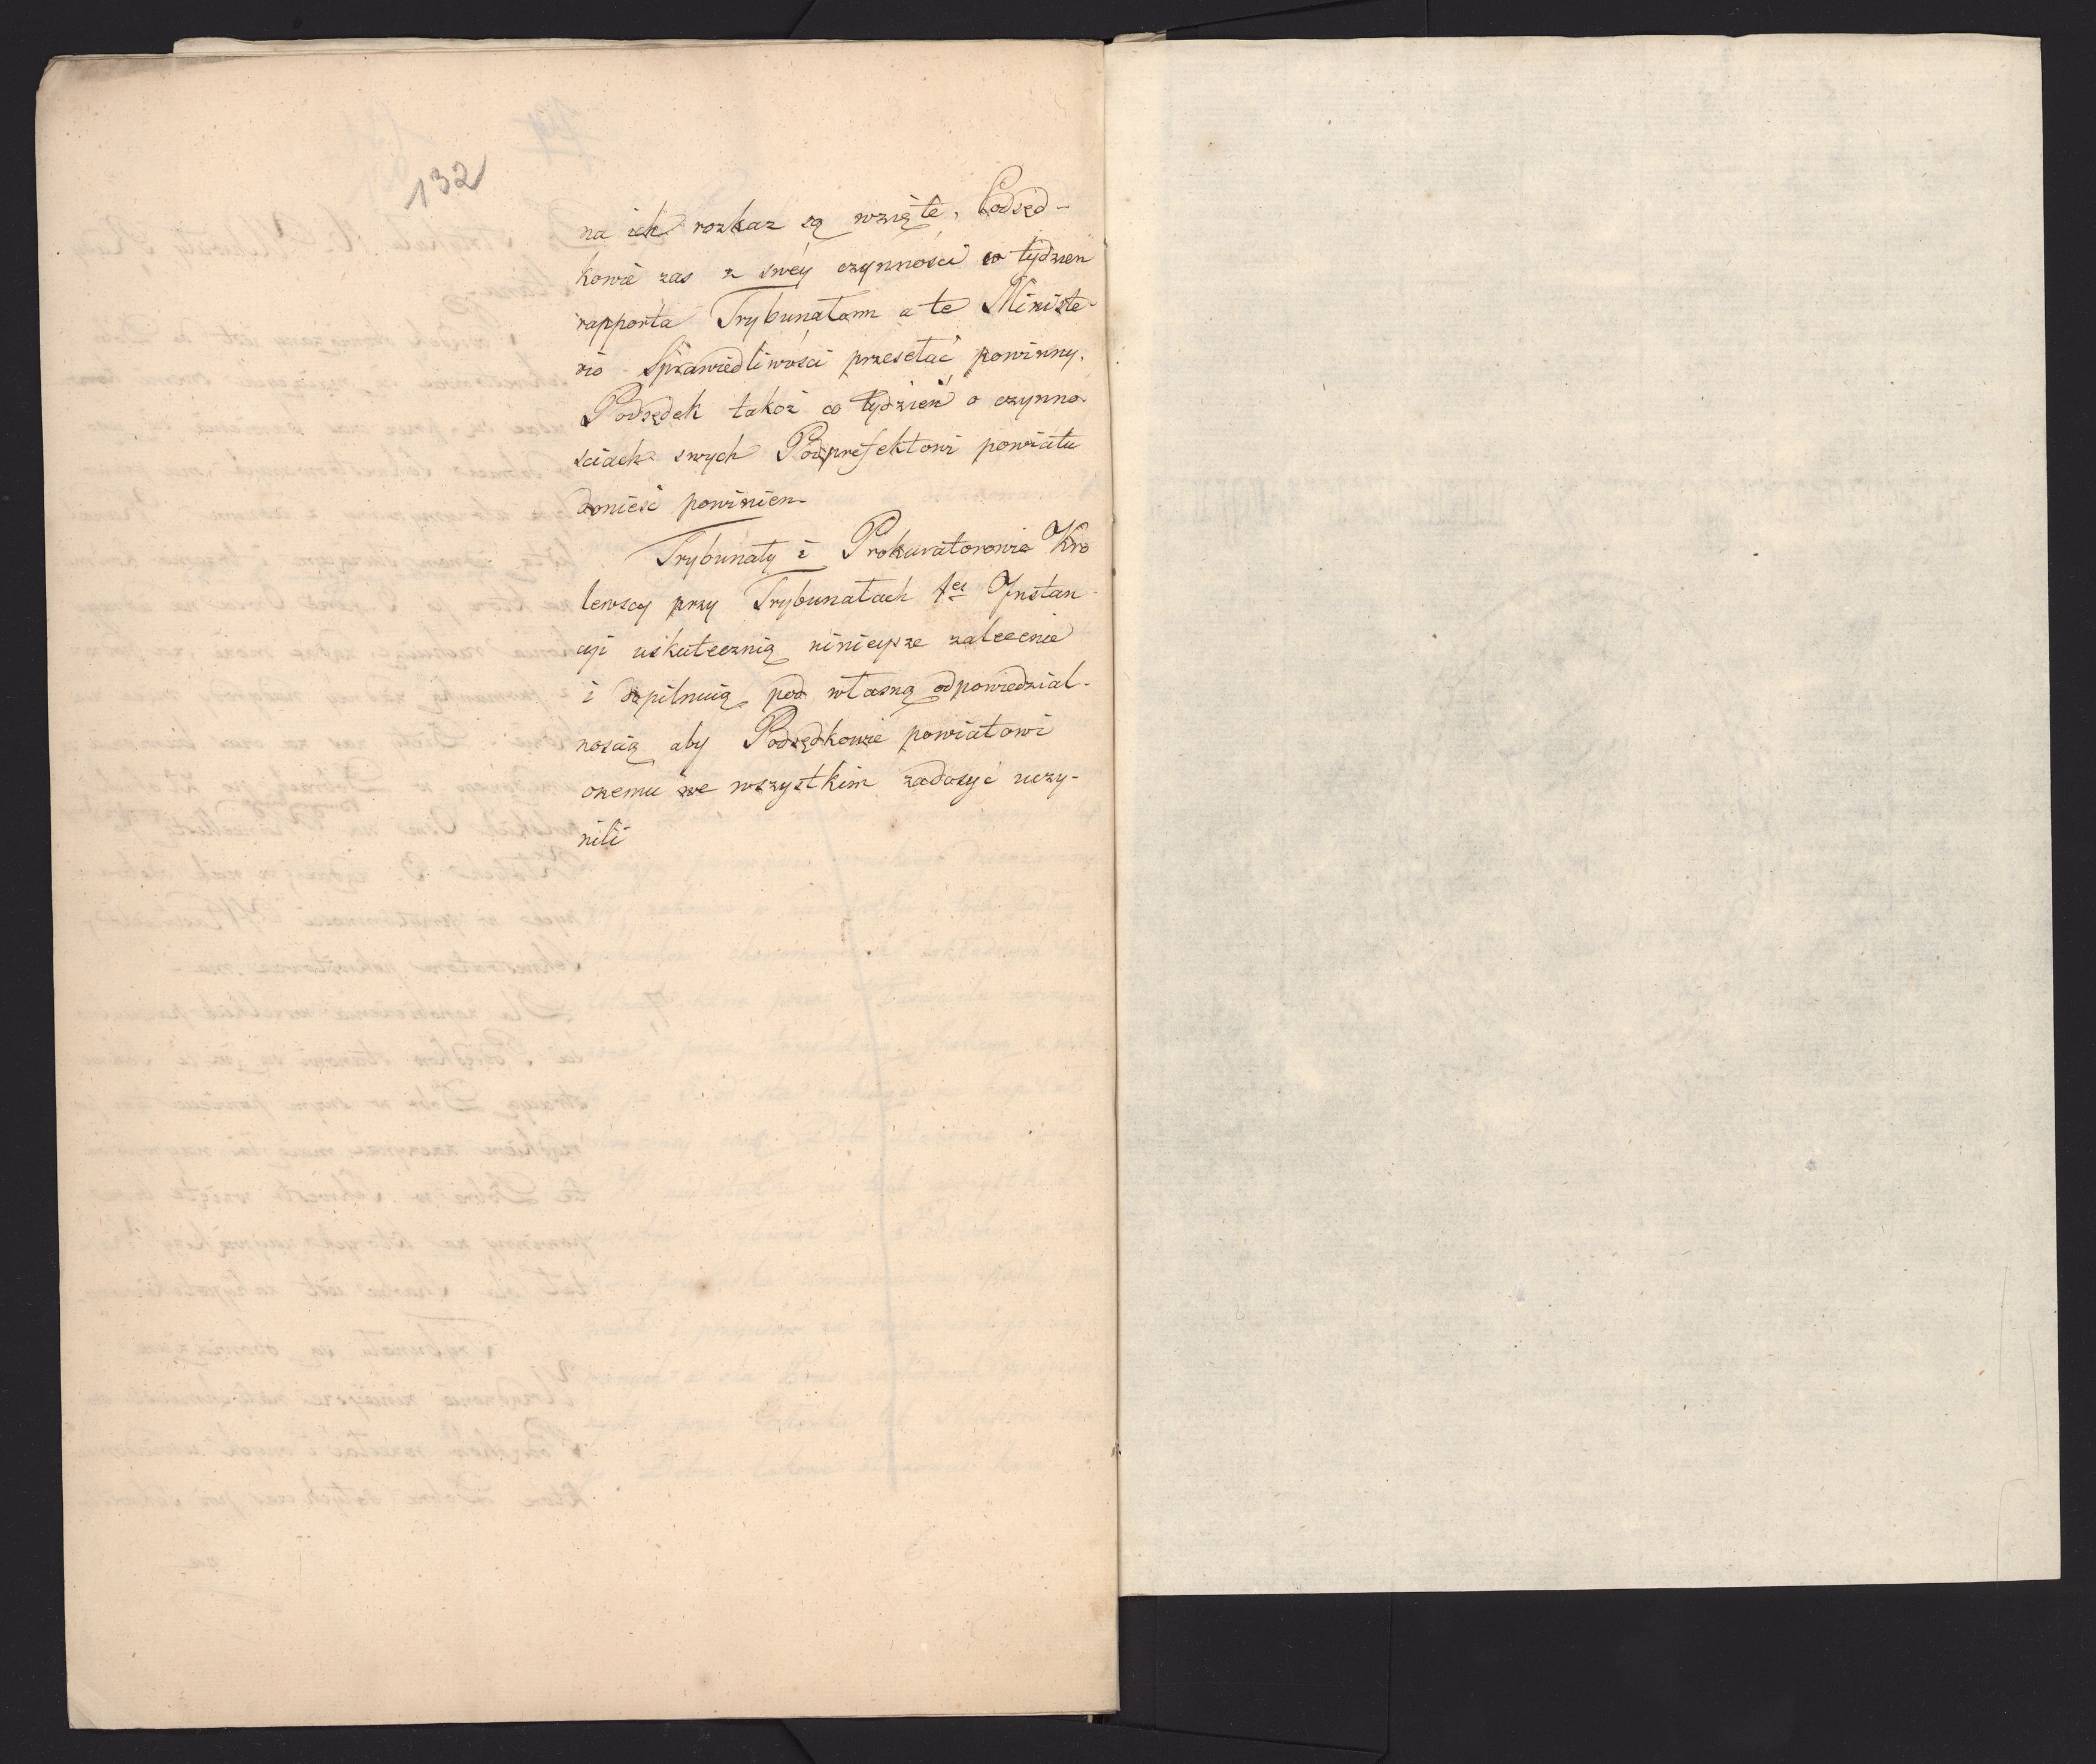 132
na ich rozkaz są wzięte, Podsęd-
kowie zas z swéy czynności co tydzien
rapporta Trybunałom a te Ministe-
rio Sprawiedliwosci przesełać powinny.
Podsędek takoż co tydzień o czynno-
sciach swych Podprefektowi powiatu
donieść powinien
Trybunały i Prokuratorowie Kro
lewscy przy Trybunałach 1ei Instan-
cyi uskutecznią ninieysze zalecenie
i dopilnuią pod własną odpowiedzial-
noscią aby Podsędkowie powiatowi
onemu we wszystkim zadosyć uczy-
nili